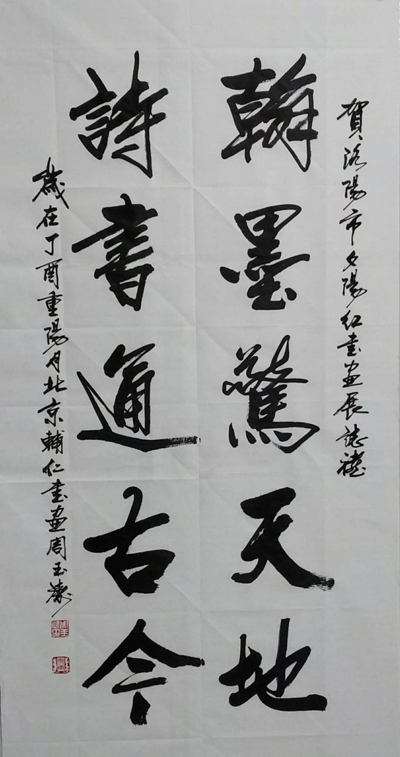 賀洛陽市夕陽红書画展誌禧
翰墨驚天地
詩書通古今
歲在丁酉重陽月北京輔仁書画周玉